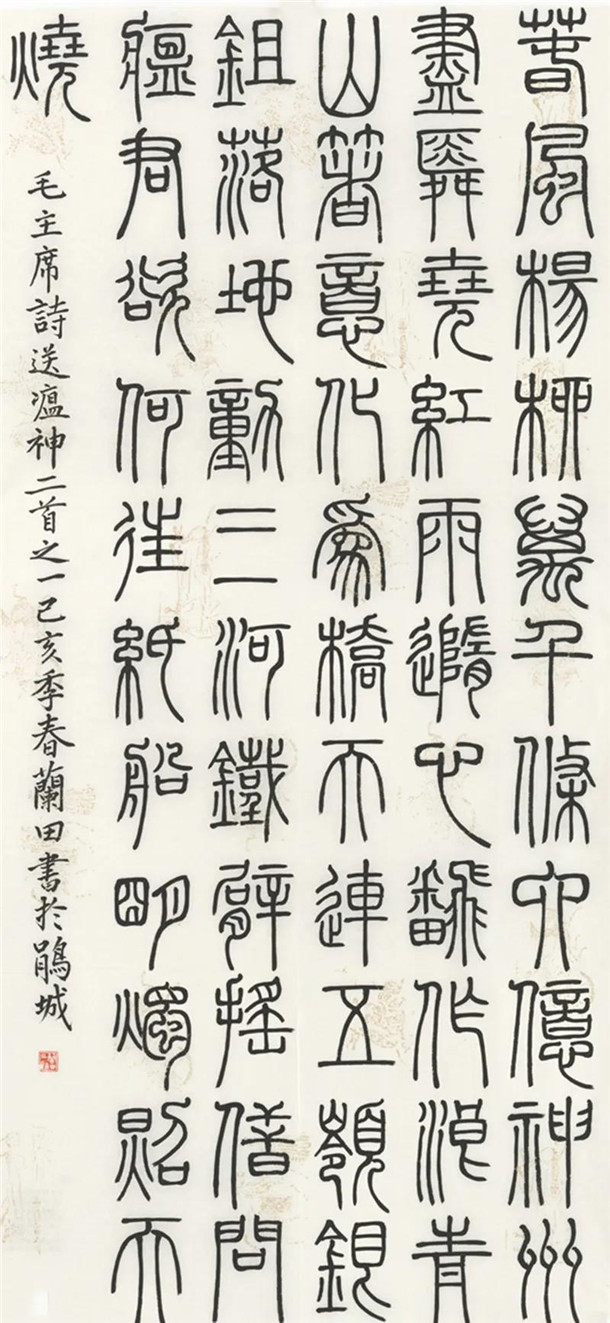 春風楊柳萬千條六億神州
盡舜堯紅雨隨心飜作浪青
山箸意化爲橋天連五嶺銀
鉏落地動三河鐵臂搖借問
瘟君欲何往紙船明燭照天
燒
毛主席詩送瘟神二首之一己亥季春蘭田書於鵑城